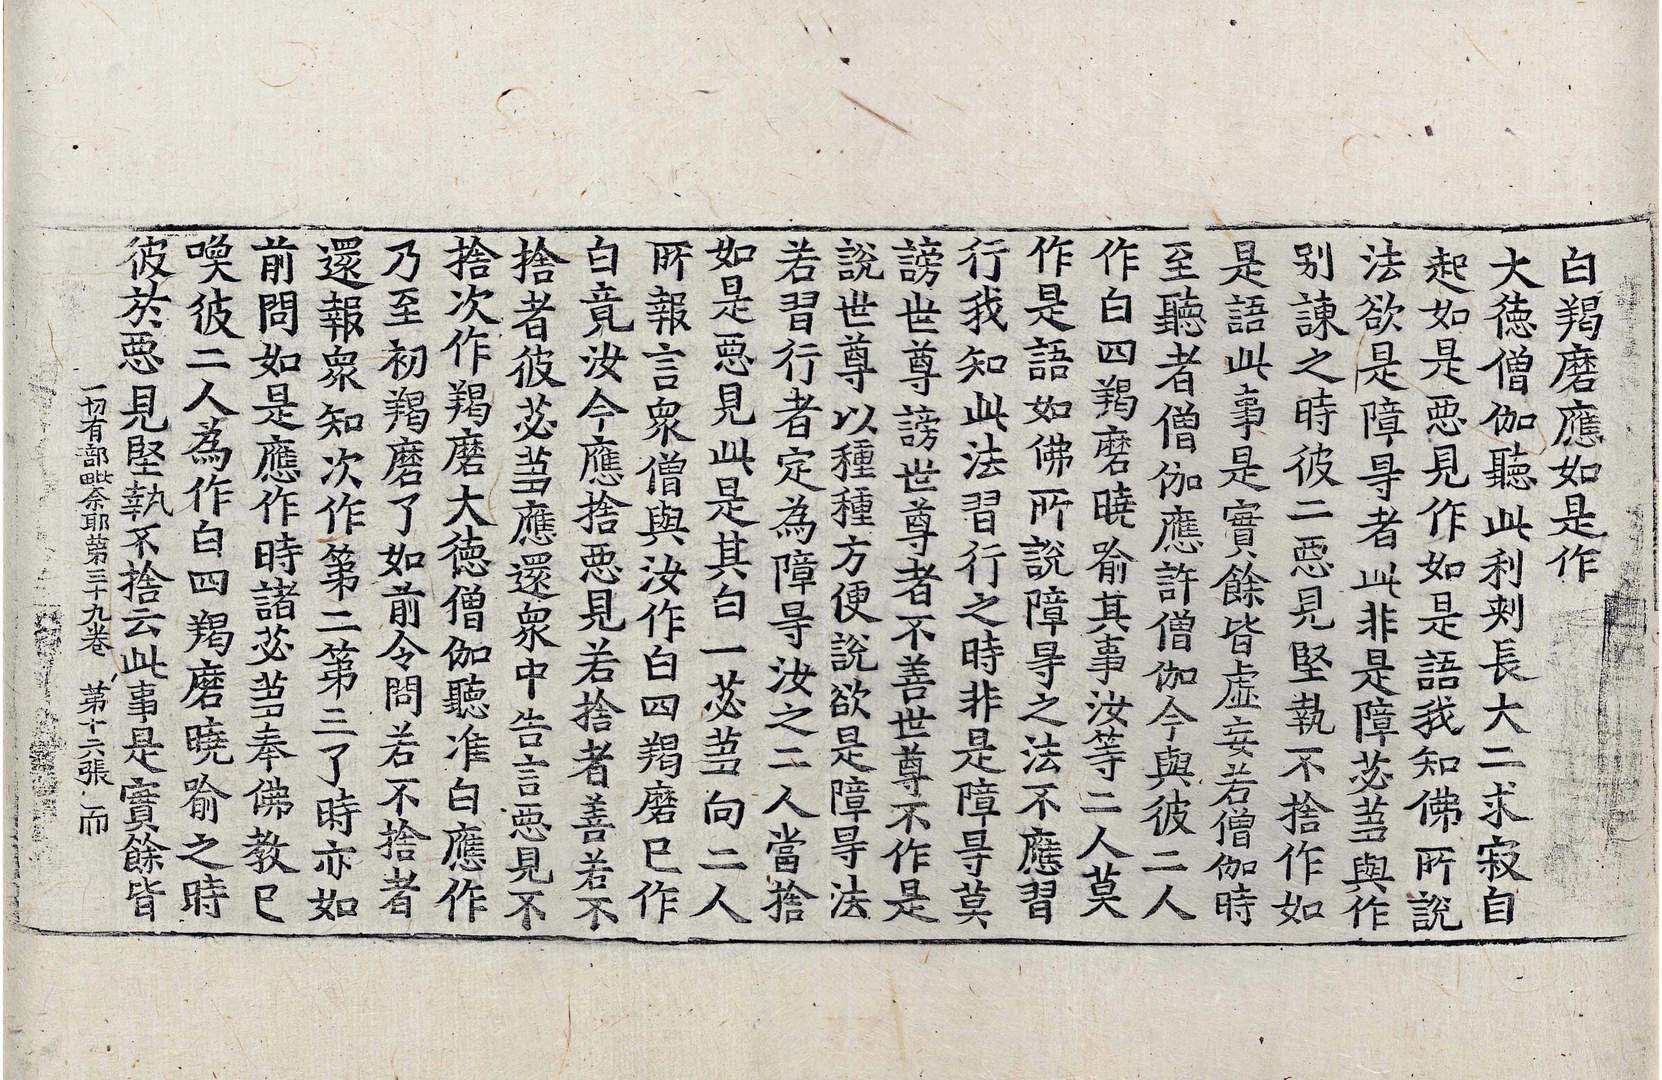 白羯磨應如是作
大徳僧伽聽此利刾長大二求寂自
起如是惡見作如是語我知佛所說
法欲是障㝵者此非是障苾蒭與作
别諫之時彼二惡見堅執不捨作如
是語此事是實餘皆虛妄若僧伽時
至聽者僧伽應許僧伽今與彼二人
作白四羯磨曉喻其事汝等二人莫
作是語如佛所說障㝵之法不應習
行我知此法習行之時非是障㝵莫
謗世尊謗世尊者不善世尊不作是
說世尊以種種方便說欲是障㝵法
若習行者定為障㝵汝之二人當捨
如是惡見此是其白一苾蒭向二人
所報言衆僧與汝作白四羯磨已作
白竟汝今應捨惡見若捨者善若不
捨者彼苾蒭應還衆中告言惡見不
捨次作羯磨大徳僧伽聽准白應作
乃至初羯磨了如前令問若不捨者
還報衆知次作第二第三了時亦如
前問如是應作時諸苾蒭奉佛教已
喚彼二人為作白四羯磨曉喻之時
彼於惡見堅執不捨云此事是實餘皆
一切有部毗奈耶第三十九卷 第十六張 而